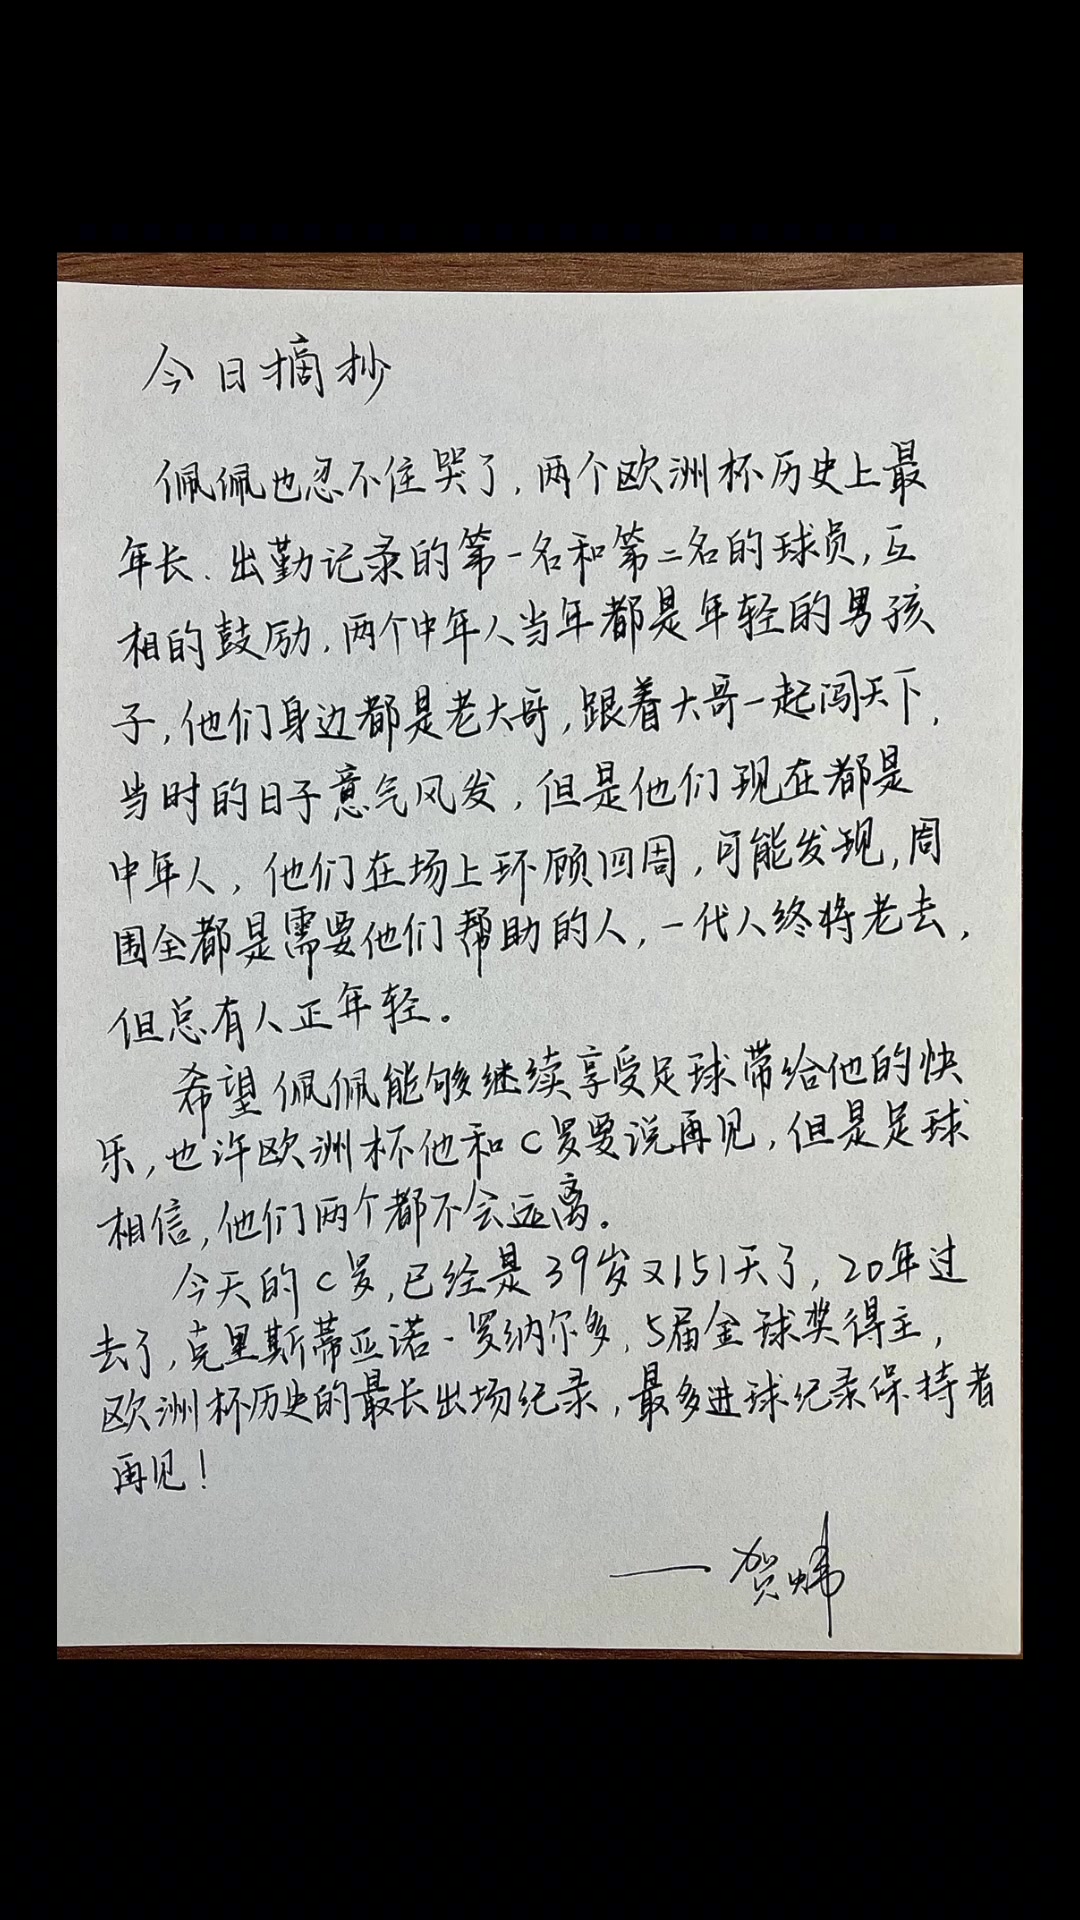 今日摘抄
佩佩也忍不住哭了,两个欧洲杯历史上最
年长、出勤记录的第一名和第二名的球员,互
相的鼓励,两个中年人当年都是年轻的男孩
子,他们身边都是老大哥,跟着大哥一起闯天下,
当时的日子意气风发,但是他们现在都是
中年人,他们在场上环顾四周,可能发现,周
围全都是需要他们帮助的人,一代人终将老去,
但总有人正年轻。
希望佩佩能够继续享受足球带给他的快
乐,也许欧洲杯他和C罗要说再见,但是足球
相信,他们两个都不会远离。
今天的C罗,已经是39岁又151天了,20年过
去了,克里斯蒂亚诺·罗纳尔多,5届金球奖得主,
欧洲杯历史的最长出场纪录,最多进球纪录保持者
再见!
——贺炜